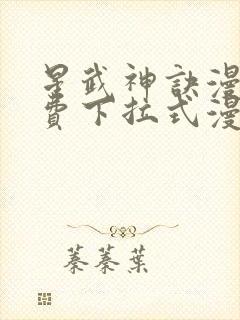 星武神訣漫
費下拉式漫
蓁蓁葉